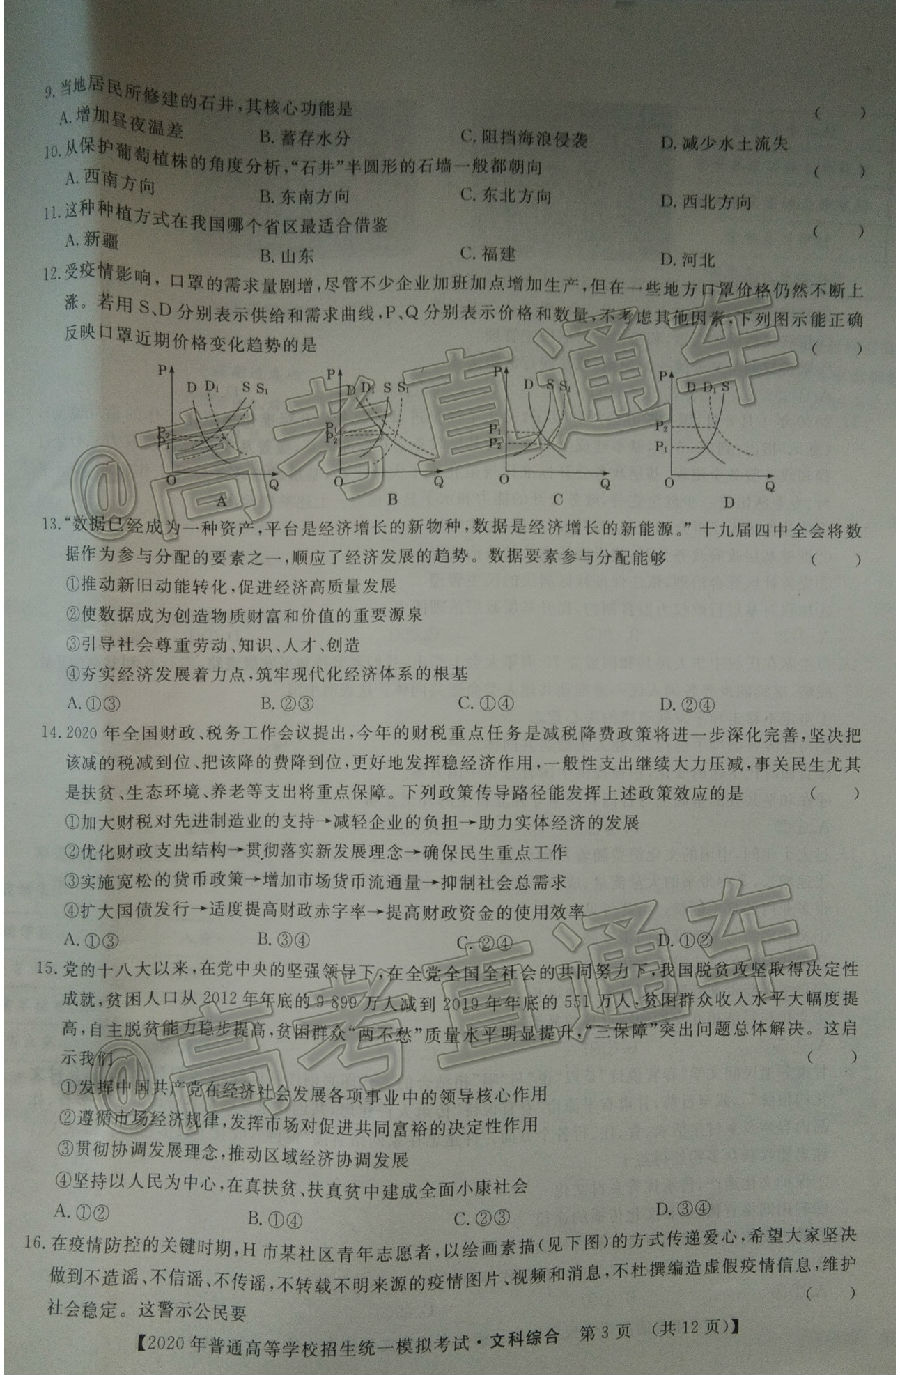 9.当地居民所修建的石井,其核心功能是 ( )
A.增加昼夜温差 B.蓄存水分 C.阻挡海浪侵袭 D.减少水土流失
10.从保护葡萄植株的角度分析,“石井”半圆形的石墙一般都朝向 ( )
A.西南方向 B.东南方向 C.东北方向 D.西北方向
11.这种种植方式在我国哪个省区最适合借鉴 ( )
A.新疆 B.山东 C.福建 D.河北
12.受疫情影响，口罩的需求量剧增,尽管不少企业加班加点增加生产,但在一些地方口罩价格仍然不断上
涨。若用S、D分别表示供给和需求曲线,P、Q分别表示价格和数量,不考虑其他因素,下列图示能正确
反映口罩近期价格变化趋势的是 ( )
P D D₁ S S₁ P₂ P₁ O Q A
P D D₁ S S₁ P₁ P₂ O Q B
P D S S₁ P₁ P₂ O Q C
P D D₁ S P₂ P₁ O Q D
13.“数据已经成为一种资产,平台是经济增长的新物种,数据是经济增长的新能源。”十九届四中全会将数
据作为参与分配的要素之一,顺应了经济发展的趋势。数据要素参与分配能够 ( )
①推动新旧动能转化,促进经济高质量发展
②使数据成为创造物质财富和价值的重要源泉
③引导社会尊重劳动、知识、人才、创造
④夯实经济发展着力点,筑牢现代化经济体系的根基
A.①③ B.②③ C.①④ D.②④
14.2020年全国财政、税务工作会议提出,今年的财税重点任务是减税降费政策将进一步深化完善,坚决把
该减的税减到位、把该降的费降到位,更好地发挥稳经济作用,一般性支出继续大力压减,事关民生尤其
是扶贫、生态环境、养老等支出将重点保障。下列政策传导路径能发挥上述政策效应的是 ( )
①加大财税对先进制造业的支持→减轻企业的负担→助力实体经济的发展
②优化财政支出结构→贯彻落实新发展理念→确保民生重点工作
③实施宽松的货币政策→增加市场货币流通量→抑制社会总需求
④扩大国债发行→适度提高财政赤字率→提高财政资金的使用效率
A.①③ B.③④ C.②④ D.①②
15.党的十八大以来,在党中央的坚强领导下,在全党全国全社会的共同努力下,我国脱贫攻坚取得决定性
成就,贫困人口从2012年年底的9 899万人减到2019年年底的551万人,贫困群众收入水平大幅度提
高,自主脱贫能力稳步提高,贫困群众“两不愁”质量水平明显提升,“三保障”突出问题总体解决。这启
示我们 ( )
①发挥中国共产党在经济社会发展各项事业中的领导核心作用
②遵循市场经济规律,发挥市场对促进共同富裕的决定性作用
③贯彻协调发展理念,推动区域经济协调发展
④坚持以人民为中心,在真扶贫、扶真贫中建成全面小康社会
A.①② B.①④ C.②③ D.③④
16.在疫情防控的关键时期,H市某社区青年志愿者,以绘画素描(见下图)的方式传递爱心,希望大家坚决
做到不造谣、不信谣、不传谣,不转载不明来源的疫情图片、视频和消息,不杜撰编造虚假疫情信息,维护
社会稳定。这警示公民要 ( )
【2020年普通高等学校招生统一模拟考试·文科综合 第3页 (共12页)】
@高考直通车
@高考直通车